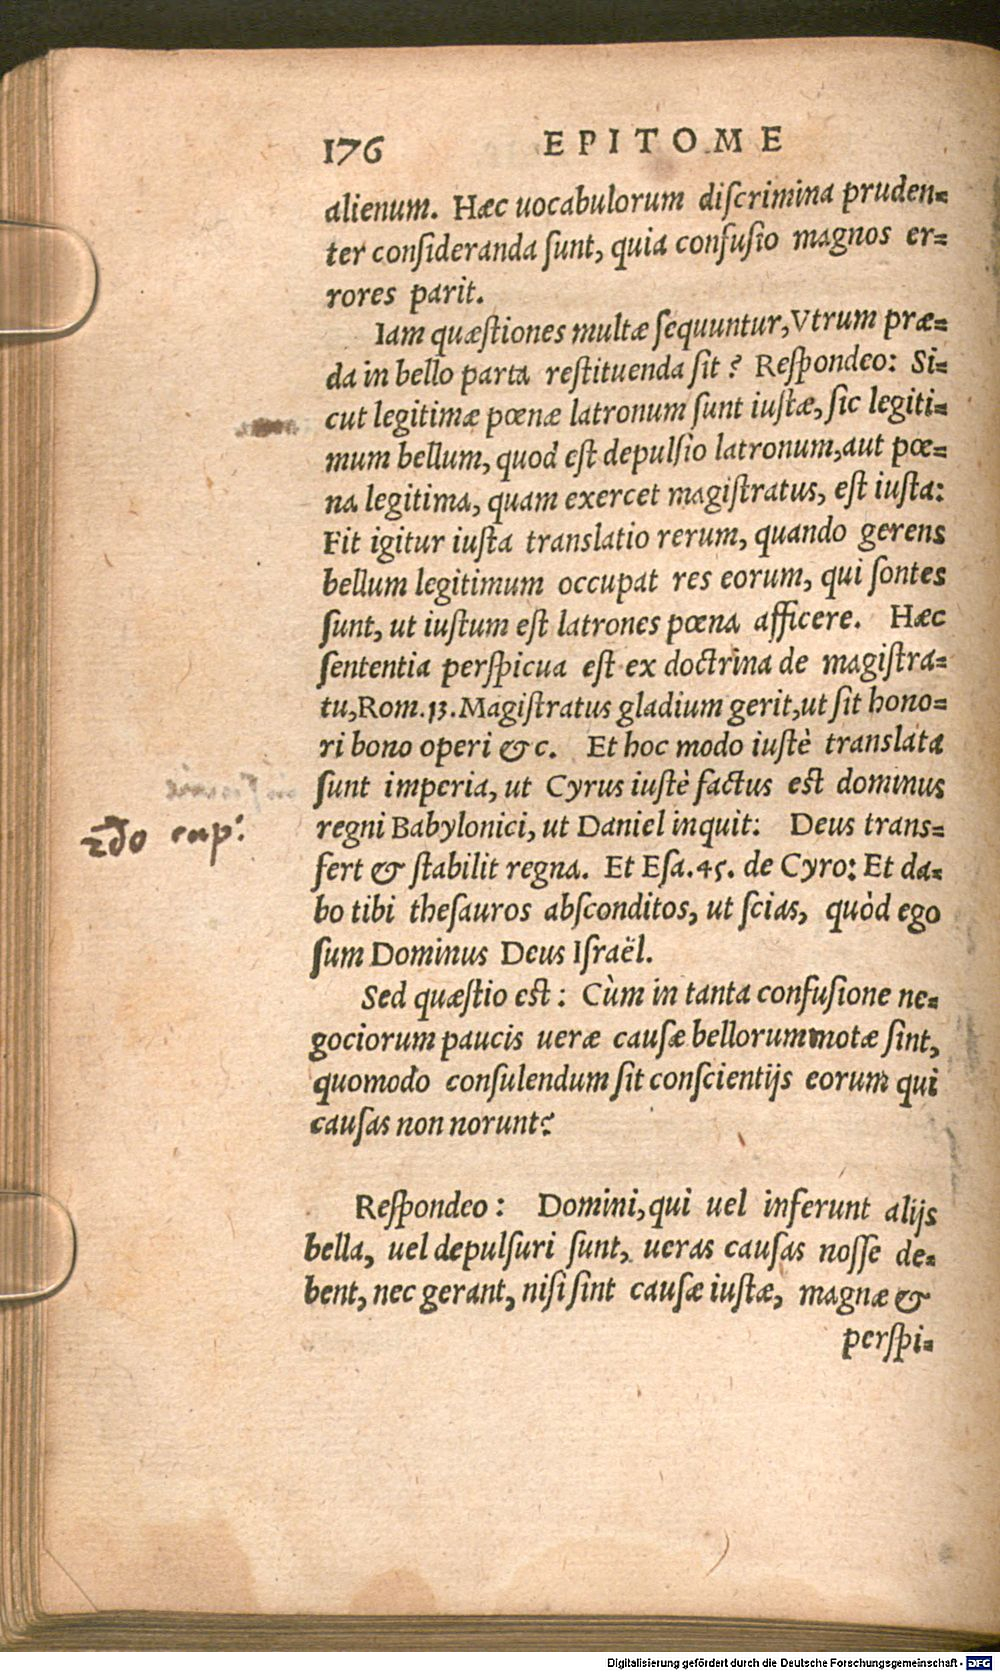 176 EPITOME
alienum. Hæc uocabulorum diſcrimina pruden-
ter conſideranda ſunt, quia confuſio magnos er-
rores parit.
Iam quæſtiones multæ ſequuntur, Vtrum præ-
da in bello parta reſtituenda ſit? Reſpondeo: Si-
cut legitimæ pœnæ latronum ſunt iuſtæ, ſic legiti-
mum bellum, quod eſt depulſio latronum, aut pœ-
na legitima, quam exercet magiſtratus, eſt iuſta:
Fit igitur iuſta translatio rerum, quando gerens
bellum legitimum occupat res eorum, qui ſontes
ſunt, ut iuſtum eſt latrones pœna afficere. Hæc
ſententia perſpicua eſt ex doctrina de magiſtra-
tu, Rom. 13. Magiſtratus gladium gerit, ut ſit hono-
ri bono operi &c. Et hoc modo iuſtè translata
ſunt imperia, ut Cyrus iuſtè factus eſt dominus
regni Babylonici, ut Daniel inquit: Deus trans-
2do cap:
fert & ſtabilit regna. Et Eſa. 45. de Cyro: Et da-
bo tibi theſauros abſconditos, ut ſcias, quòd ego
ſum Dominus Deus Iſraël.
Sed quæſtio eſt: Cùm in tanta confuſione ne-
gociorum paucis ueræ cauſæ bellorum motæ ſint,
quomodo conſulendum ſit conſcientijs eorum qui
cauſas non norunt?
Reſpondeo: Domini, qui uel inferunt alijs
bella, uel depulſuri ſunt, ueras cauſas noſſe de-
bent, nec gerant, niſi ſint cauſæ iuſtæ, magnæ &
perſpi-
Digitalisierung gefördert durch die Deutsche Forschungsgemeinschaft - DFG